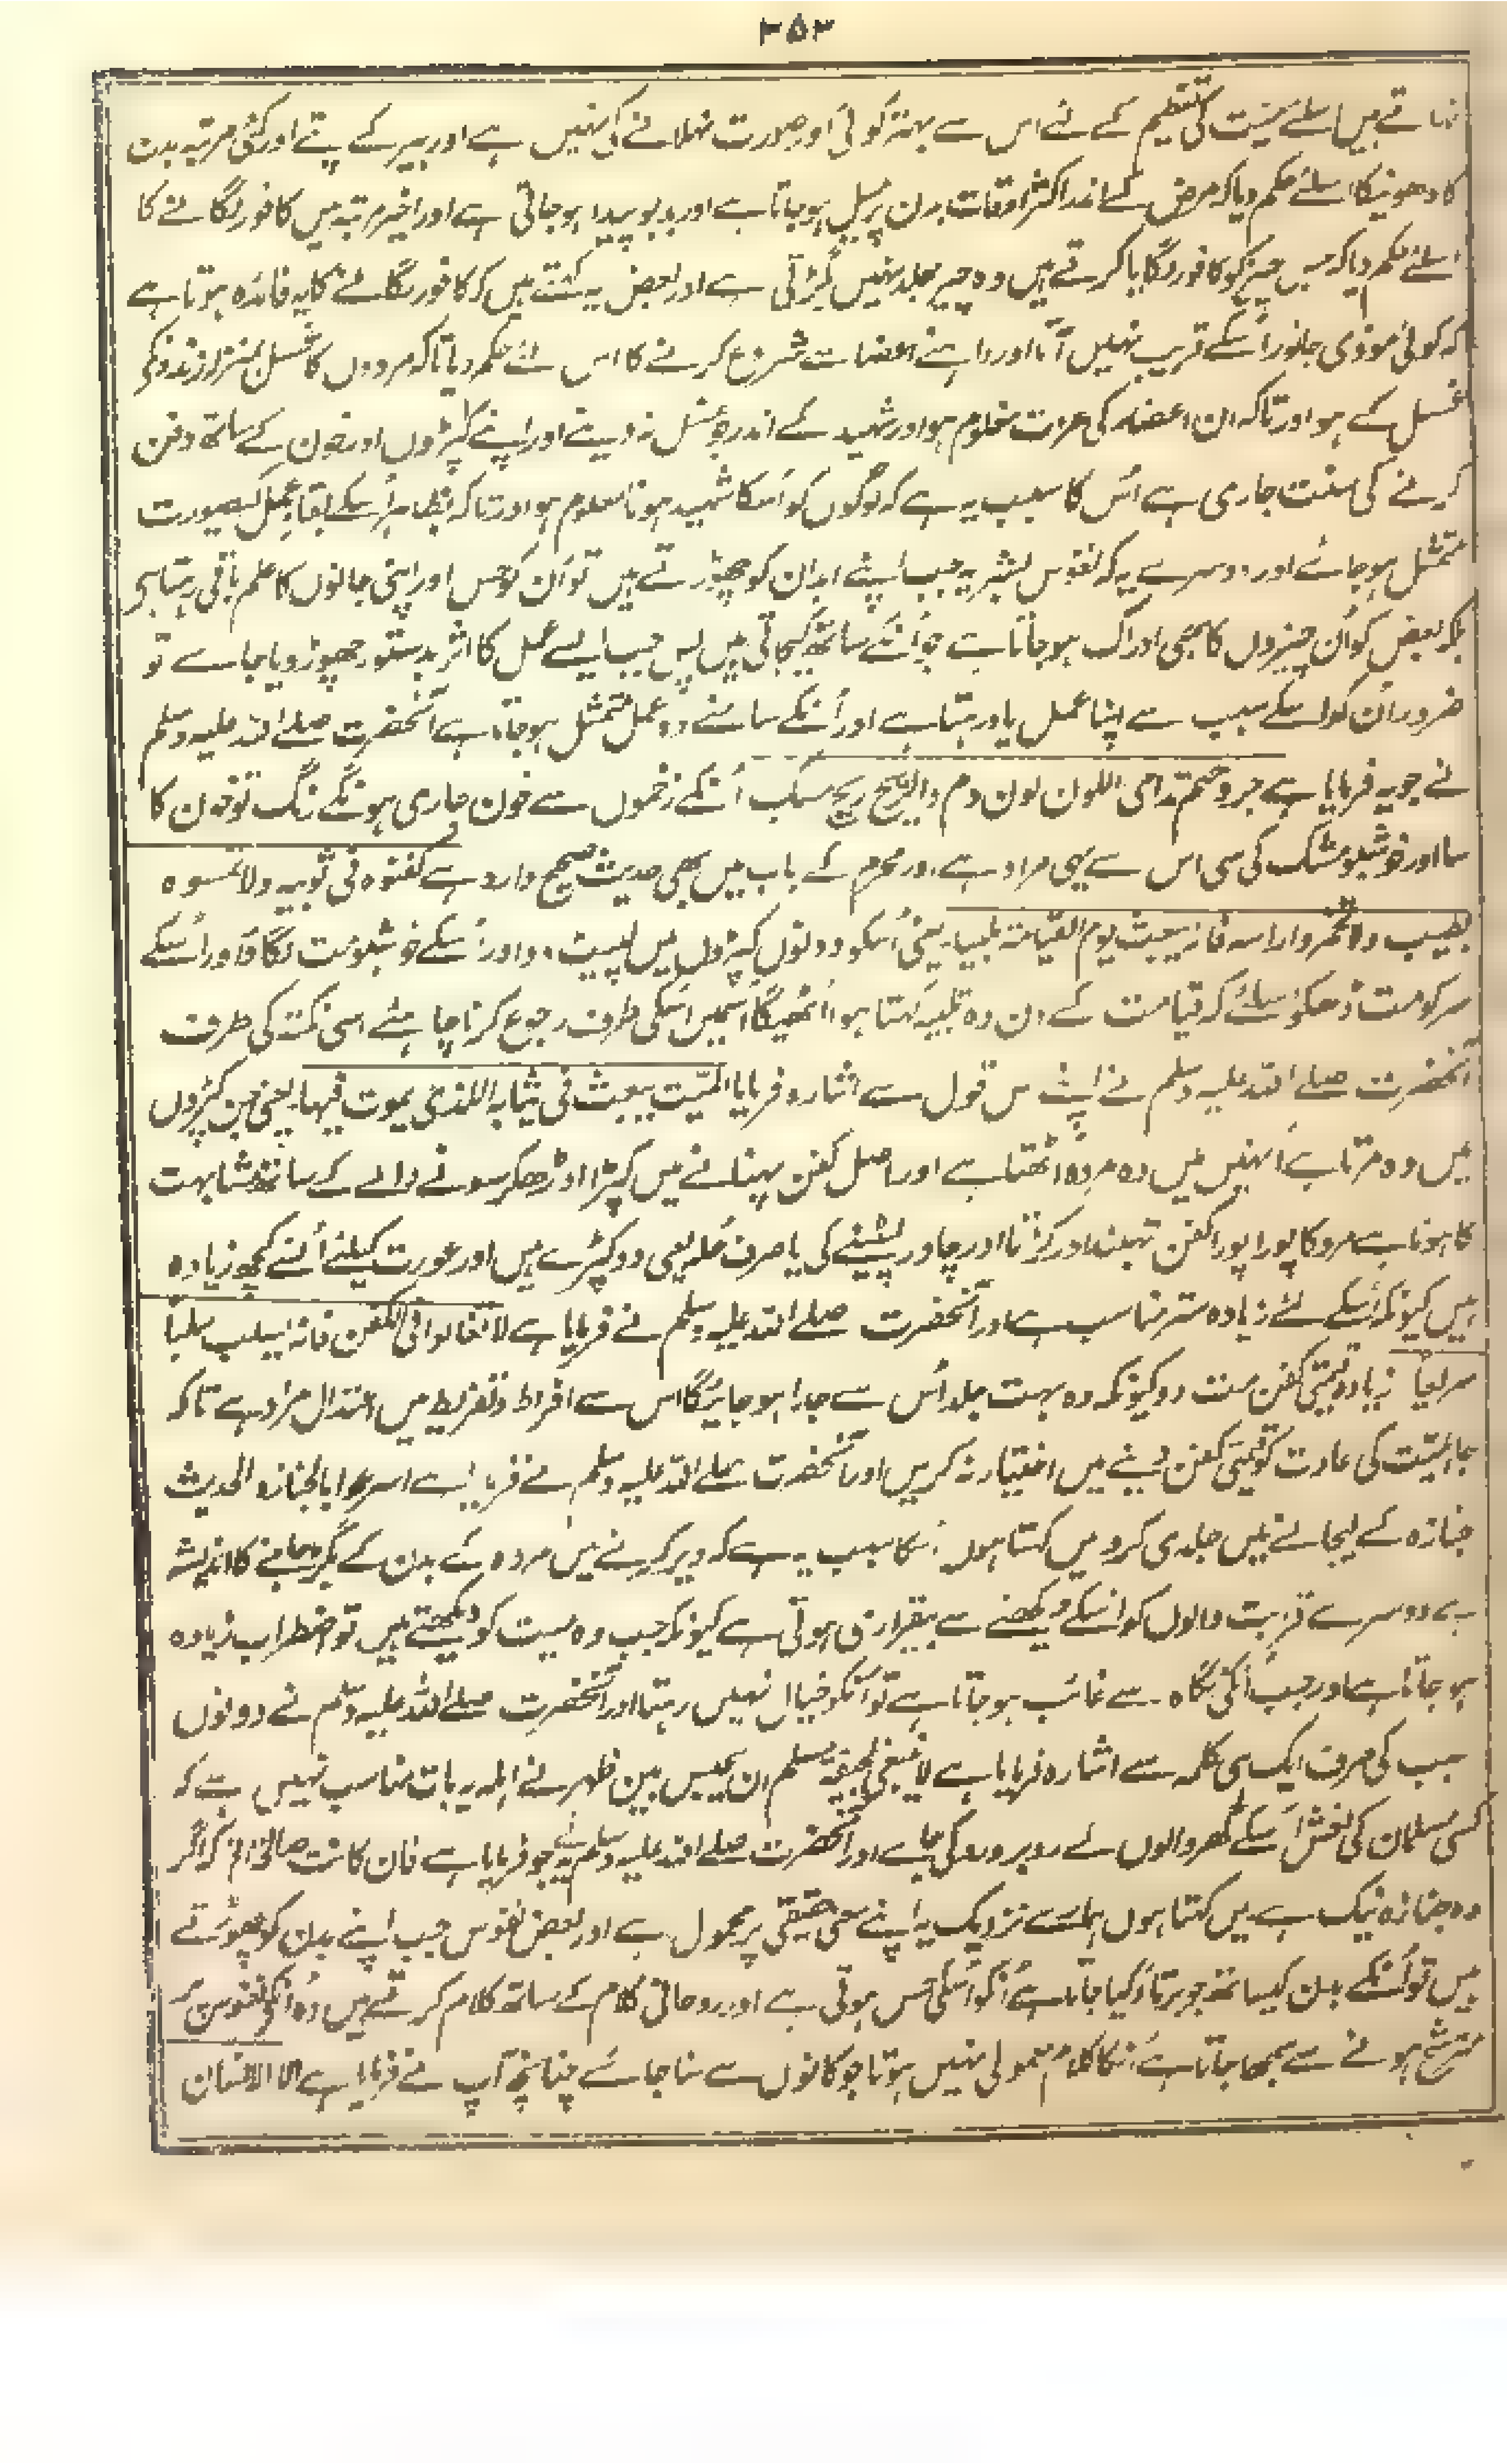 ۳۵۳
نہاتے ہیں اسلئے میّت کی تعظیم کے لئے اس سے بہتر کوئی اور صورت نہلانے کی نہیں ہے اور بیر کے پتے اور کئی مرتبہ بدن
کا دھونیکا اسلئے حکم دیا کہ مرض کے اندر اکثر اوقات بدن پر میل ہو جاتا ہے اور بدبو پیدا ہو جاتی ہے اور اخیر مرتبہ میں کافور لگانے کا
اسلئے حکم دیا کہ جس چیز کو کافور لگایا کرتے ہیں وہ چیز جلد نہیں بگڑتی ہے اور بعض یہ کہتے ہیں کہ کافور لگانے کا یہ فائدہ ہوتا ہے
کہ کوئی موذی جانور اُسکے قریب نہیں آتا اور داہنے اعضا سے شروع کرنے کا اس لئے حکم دیا تاکہ مردوں کا غسل بمنزلہ زندوں کے
غسل کے ہو اور تاکہ ان اعضا کی عزت معلوم ہو اور شہید کے اندر جو غسل نہ دینے اور اپنے کپڑوں اور خون کے ساتھ دفن
کرنے کی سنت جاری ہے اُس کا سبب یہ ہے کہ لوگوں کو اُسکا شہید ہونا معلوم ہو اور تاکہ بظاہر اُسکے بقاء عمل کی صورت
متمثل ہو جائے اور دوسرے یہ کہ نفوس بشریہ جب اپنے ابدان کو چھوڑتے ہیں تو اُن کو حس اور اپنی جانوں کا علم باقی رہتا ہے
بلکہ بعض کو اُن چیزوں کا بھی ادراک ہو جاتا ہے جو اُنکے ساتھ کیجاتی ہیں پس جب ایسے عمل کا اثر بدستور چھوڑ دیا جاے تو
ضرور اُن کو اسکے سبب سے اپنا عمل یاد رہتا ہے اور اُنکے سامنے وہ عمل متمثل ہو جاتا ہے آنحضرت صلے اللہ علیہ وسلم
نے جو یہ فرمایا ہے جروحہم تدامی اللون لون دم والریح ریح مسک اُنکے زخموں سے خون جاری ہونگے رنگ تو خون کا
سا اور خوشبو مشک کی سی اس سے یہی مراد ہے اور محرم کے باب میں بھی حدیث صحیح وارد ہے کفنوہ فی ثوبیہ ولا تمسوہ
بطیب ولا تخمروا راسہ فانہ یبعث یوم القیامۃ ملبیا یعنی اُسکو دونوں کپڑوں میں لپیٹ دو اور اُسکے خوشبو مت لگاؤ اور اُسکے
سر کو مت ڈھکو اسلئے کہ قیامت کے دن وہ تلبیہ کہتا ہوا اُٹھیگا اسمیں اُسکی طرف رجوع کرنا چاہئے اسی نکتہ کی طرف
آنحضرت صلے اللہ علیہ وسلم نے اپنے اس قول سے اشارہ فرمایا المیّت یبعث فی ثیابہ اللذی یموت فیہا یعنی جن کپڑوں
میں وہ مرتا ہے اُنہیں میں وہ مردہ اُٹھتا ہے اور اصل کفن پہنانے میں کپڑا اوڑھکر سونے والے کے ساتھ مشابہت
کا ہونا ہے مرد کا پورا پورا کفن تہبند اور کُرتا اور چادر لپیٹنے کی یا صرف حُلہ یعنی دو کپڑے ہیں اور عورت کیلئے اُسنے کچھ زیادہ
ہیں کیونکہ اُسکے لئے زیادہ ستر مناسب ہے اور آنحضرت صلے اللہ علیہ وسلم نے فرمایا ہے لا تغالوا فی الکفن فانہ یسلب سلباً
سریعاً زیادہ قیمتی کفن مت دو کیونکہ وہ بہت جلد اُس سے جدا ہو جائیگا اس سے افراط و تفریط میں اعتدال مراد ہے تاکہ
جاہلیّت کی عادت کو قیمتی کفن دینے میں اختیار نہ کریں اور آنحضرت صلے اللہ علیہ وسلم نے فرمایا ہے اسرعوا بالجنازہ الحدیث
جنازہ کے لیجانے میں جلدی کرو میں کہتا ہوں اسکا سبب یہ ہے کہ دیر کرنے میں مردہ کے بدن کے بگڑ جانے کا اندیشہ
ہے دوسرے قرابت والوں کو اُسکے دیکھنے سے بیقراری ہوتی ہے کیونکہ جب وہ میت کو دیکھتے ہیں تو اضطراب زیادہ
ہو جاتا ہے اور جب اُنکی نگاہ سے غائب ہو جاتا ہے تو اُنکو خیال نہیں رہتا اور آنحضرت صلے اللہ علیہ وسلم نے دونوں
سبب کی طرف ایک ہی کلمہ سے اشارہ فرمایا ہے لا ینبغی لجیفۃ مسلم ان یحبس بین ظہرنے اہلہ یہ بات مناسب نہیں ہے کہ
کسی مسلمان کی نعش اُسکے گھر والوں کے روبرو روکی جاے اور آنحضرت صلے اللہ علیہ وسلم نے یہ جو فرمایا ہے فان کانت صالحۃ الخ کہ اگر
وہ جنازہ نیک ہے میں کہتا ہوں ہمارے نزدیک یہ اپنے معنی حقیقی پر محمول ہے اور بعض نفوس جب اپنے بدن کو چھوڑتے
ہیں تو اُنکے بدن کیساتھ جو برتاؤ کیا جاتا ہے اُنکو اُسکی حس ہوتی ہے اور روحانی کلام کے ساتھ کلام کرتے ہیں وہ اُنکے نفوس پر
مترشح ہونے سے سمجھا جاتا ہے اُنکا کلام معمولی نہیں ہوتا جو کانوں سے سنا جائے چنانچہ آپ نے فرمایا ہے الا الانسان